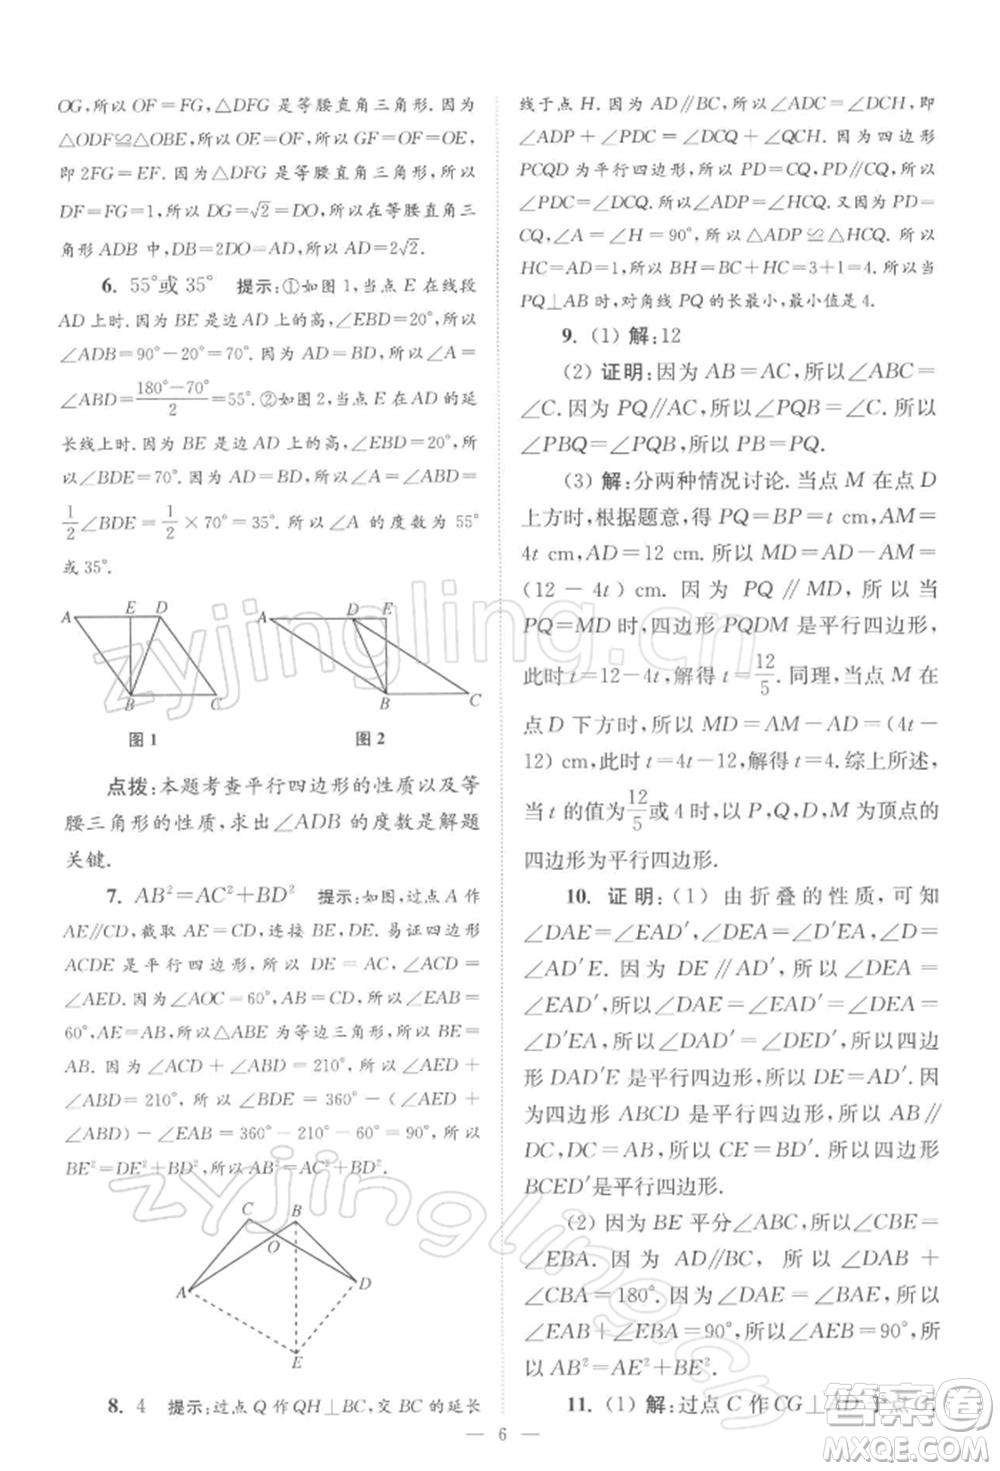 OG,所以 OF=FG,△DFG 是等腰直角三角形.因为
△ODF≌△OBE,所以 OE=OF,所以 GF=OF=OE,
即 2FG=EF.因为△DFG 是等腰直角三角形,所以
DF=FG=1,所以 DG=√2=DO,所以在等腰直角三
角形 ADB 中,DB=2DO=AD,所以 AD=2√2.
6. 55°或 35° 提示:①如图 1,当点 E 在线段
AD 上时.因为 BE 是边 AD 上的高,∠EBD=20°,所以
∠ADB=90°-20°=70°.因为 AD=BD,所以∠A=
∠ABD=(180°-70°)/2=55°.②如图 2,当点 E 在 AD 的延
长线上时.因为 BE 是边 AD 上的高,∠EBD=20°,所
以∠BDE=70°.因为 AD=BD,所以∠A=∠ABD=
1/2∠BDE=1/2×70°=35°.所以∠A 的度数为 55°
或 35°.
A E D
B C
图 1
A D E
B C
图 2
点拨:本题考查平行四边形的性质以及等
腰三角形的性质,求出∠ADB 的度数是解题
关键.
7. AB²=AC²+BD² 提示:如图,过点 A 作
AE∥CD,截取 AE=CD,连接 BE,DE.易证四边形
ACDE 是平行四边形,所以 DE=AC,∠ACD=
∠AED.因为∠AOC=60°,AB=CD,所以∠EAB=
60°,AE=AB,所以△ABE 为等边三角形,所以 BE=
AB.因为∠ACD+∠ABD=210°,所以∠AED+
∠ABD=210°,所以∠BDE=360°-(∠AED+
∠ABD)-∠EAB=360°-210°-60°=90°,所以
BE²=DE²+BD²,所以 AB²=AC²+BD².
C B
O
A D
E
8. 4 提示:过点 Q 作 QH⊥BC,交 BC 的延长
线于点 H.因为 AD∥BC,所以∠ADC=∠DCH,即
∠ADP+∠PDC=∠DCQ+∠QCH.因为四边形
PCQD 为平行四边形,所以 PD=CQ,PD∥CQ,所以
∠PDC=∠DCQ.所以∠ADP=∠QCH.又因为 PD=
CQ,∠A=∠H=90°,所以△ADP≌△HCQ.所以
HC=AD=1,所以 BH=BC+HC=3+1=4.因为当
PQ⊥AB 时,对角线 PQ 的长最小,最小值是 4.
9. (1) 解:12
(2) 证明:因为 AB=AC,所以∠ABC=
∠C.因为 PQ∥AC,所以∠PQB=∠C.所以
∠PBQ=∠PQB,所以 PB=PQ.
(3) 解:分两种情况讨论.当点 M 在点 D
上方时,根据题意,得 PQ=BP=t cm,AM=
4t cm,AD=12 cm.所以 MD=AD-AM=
(12-4t) cm.因为 PQ∥MD,所以当
PQ=MD 时,四边形 PQDM 是平行四边形,
此时 t=12-4t,解得 t=12/5.同理,当点 M 在
点 D 下方时,所以 MD=AM-AD=(4t-
12) cm,此时 t=4t-12,解得 t=4.综上所述,
当 t 的值为12/5或 4 时,以 P,Q,D,M 为顶点的
四边形为平行四边形.
10. 证明:(1) 由折叠的性质,可知
∠DAE=∠EAD′,∠DEA=∠D′EA,∠D=
∠AD′E.因为 DE∥AD′,所以∠DEA=
∠EAD′,所以∠DAE=∠EAD′=∠DEA=
∠D′EA,所以∠DAD′=∠DED′,所以四边
形 DAD′E 是平行四边形,所以 DE=AD′.因
为四边形 ABCD 是平行四边形,所以 AB∥
DC,DC=AB,所以 CE=BD′.所以四边形
BCED′是平行四边形.
(2) 因为 BE 平分∠ABC,所以∠CBE=
∠EBA.因为 AD∥BC,所以∠DAB+
∠CBA=180°.因为∠DAE=∠BAE,所以
∠EAB+∠EBA=90°,所以∠AEB=90°,所
以 AB²=AE²+BE².
11. (1) 解:过点 C 作 CG⊥AD 于点 G,
6
zyjingling.cn
zyjingling.cn
答案圈
MXQE.COM